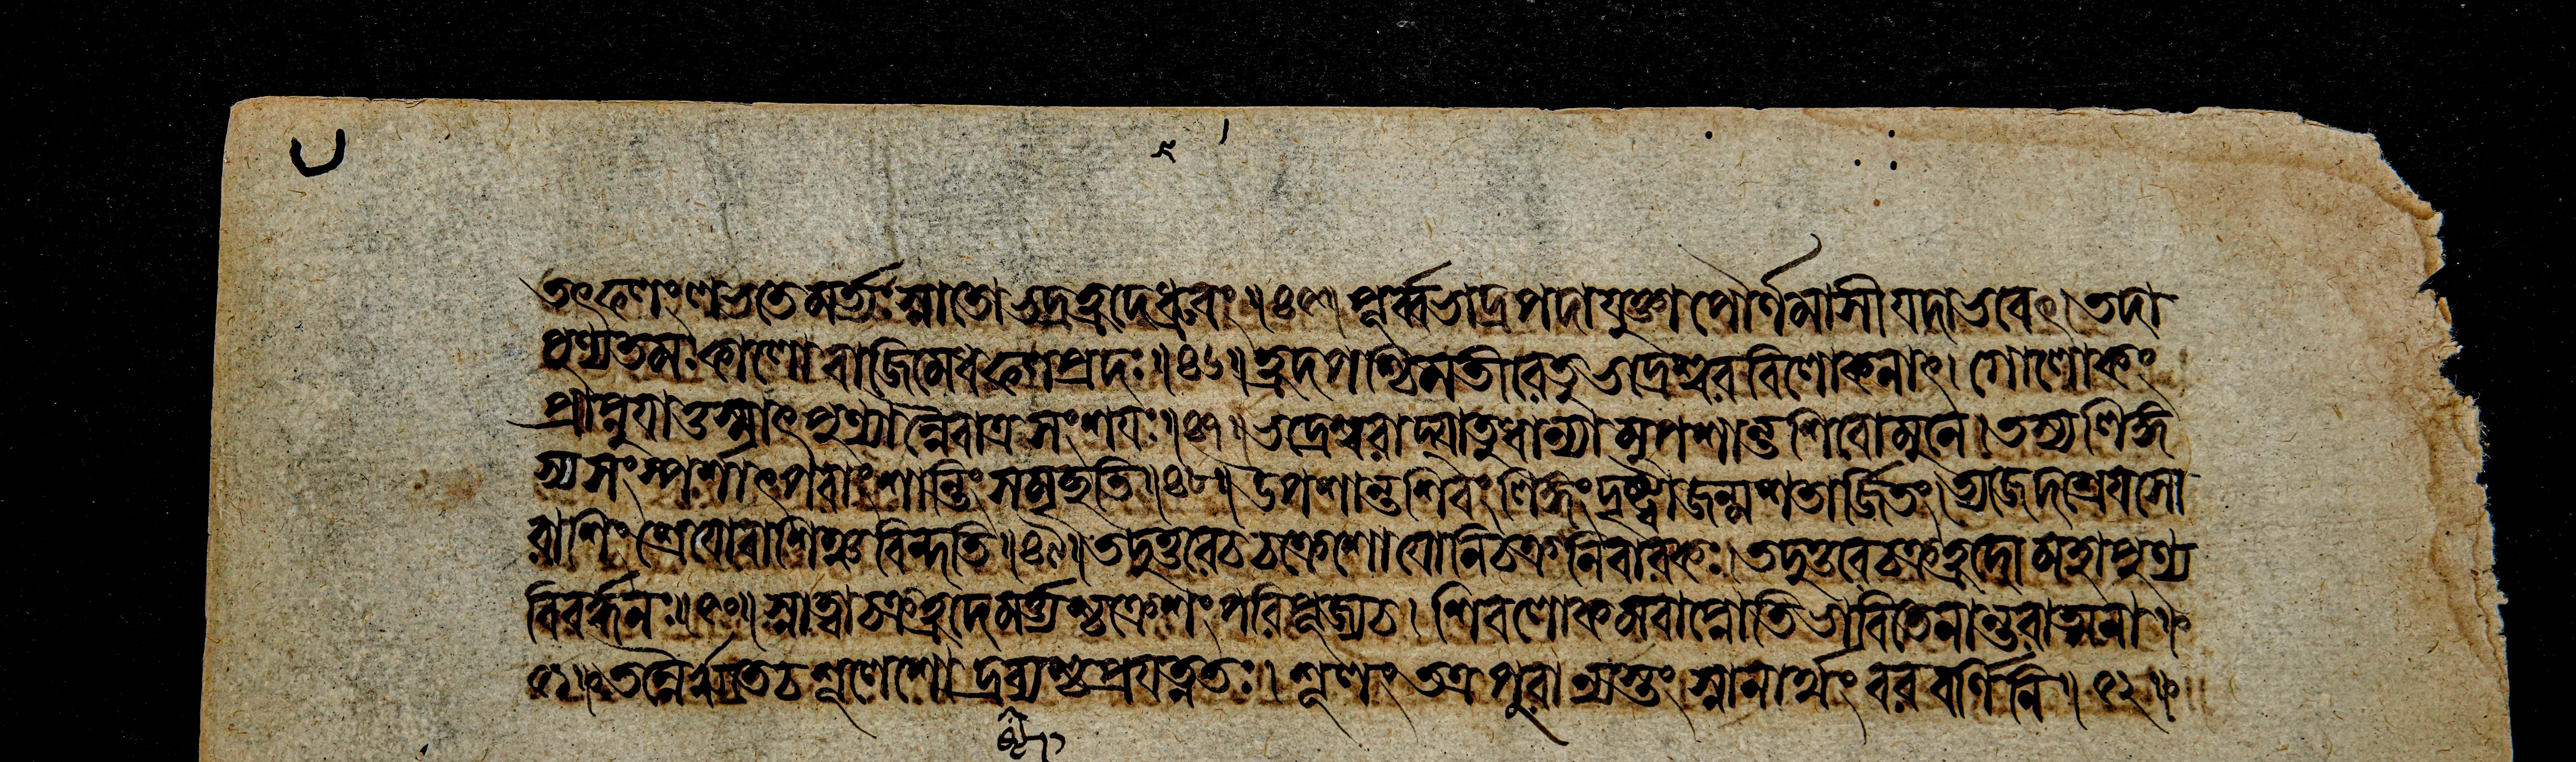 তৎফলংলভতেমর্ত্ত্যঃস্নাতোভদ্রহ্রদেধ্রুবং॥৪৫॥পূর্ব্বভাদ্রপদাযুক্তাপৌর্ণমাসীযদাভবেৎ।তদা
পুণ্যতমঃকালোবাজিমেধফলপ্রদঃ॥৪৬॥হ্রদপশ্চিমতীরেতুভদ্রেশ্বরবিলোকনাৎ।গোলোকং
প্রাপ্নুযাত্তস্মাৎপুণ্যান্নৈবাত্রসংশযঃ॥৪৭॥ভদ্রেশ্বরাদ্যাতুধান্যামুপশান্তশিবোমুনে।তস্যলিঙ্গ
স্যসংস্পর্শাৎপরাংশান্তিংসমৃচ্ছতি॥৪৮॥উপশান্তশিবংলিঙ্গংদৃষ্ট্বাজন্মশতার্জিতং।ত্যজেদশ্রেযসো
রাশিংশ্রেযোরাশিঞ্চবিন্দতি॥৪৯॥তদুত্তরেচচক্রেশোযোনিচক্রনিবারকঃ।তদুত্তরেচক্রহ্রদোমহাপুণ্য
বিবর্দ্ধনঃ॥৫০॥স্নাত্বাচক্রহ্রদেমর্ত্ত্যশ্চক্রেশংপরিপূজ্যচ।শিবলোকমবাপ্নোতিভাবিতেনান্তরাত্মনা॥
৫১॥তন্নৈরৃতেচশূলেশোদ্রষ্টব্যশ্চপ্রযত্নতঃ।শূলংতত্রপুরান্যস্তংস্নানার্থংবরবর্ণিনি॥৫২॥